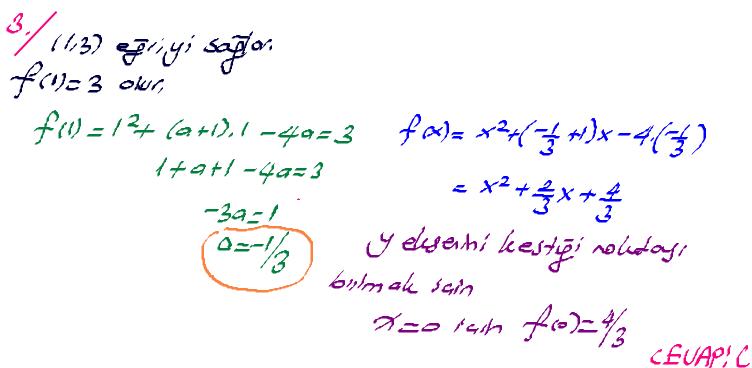 3./ (1,3) eğriyi sağlar.
f(1)=3 olur.
f(1)=1²+(a+1).1-4a=3
1+a+1-4a=3
-3a=1
a=-1/3
f(x)=x²+(-1/3+1)x-4.(-1/3)
=x²+2/3x+4/3
y eksenini kestiği noktası
bulmak için
x=0 için f(0)=4/3
CEVAP: C